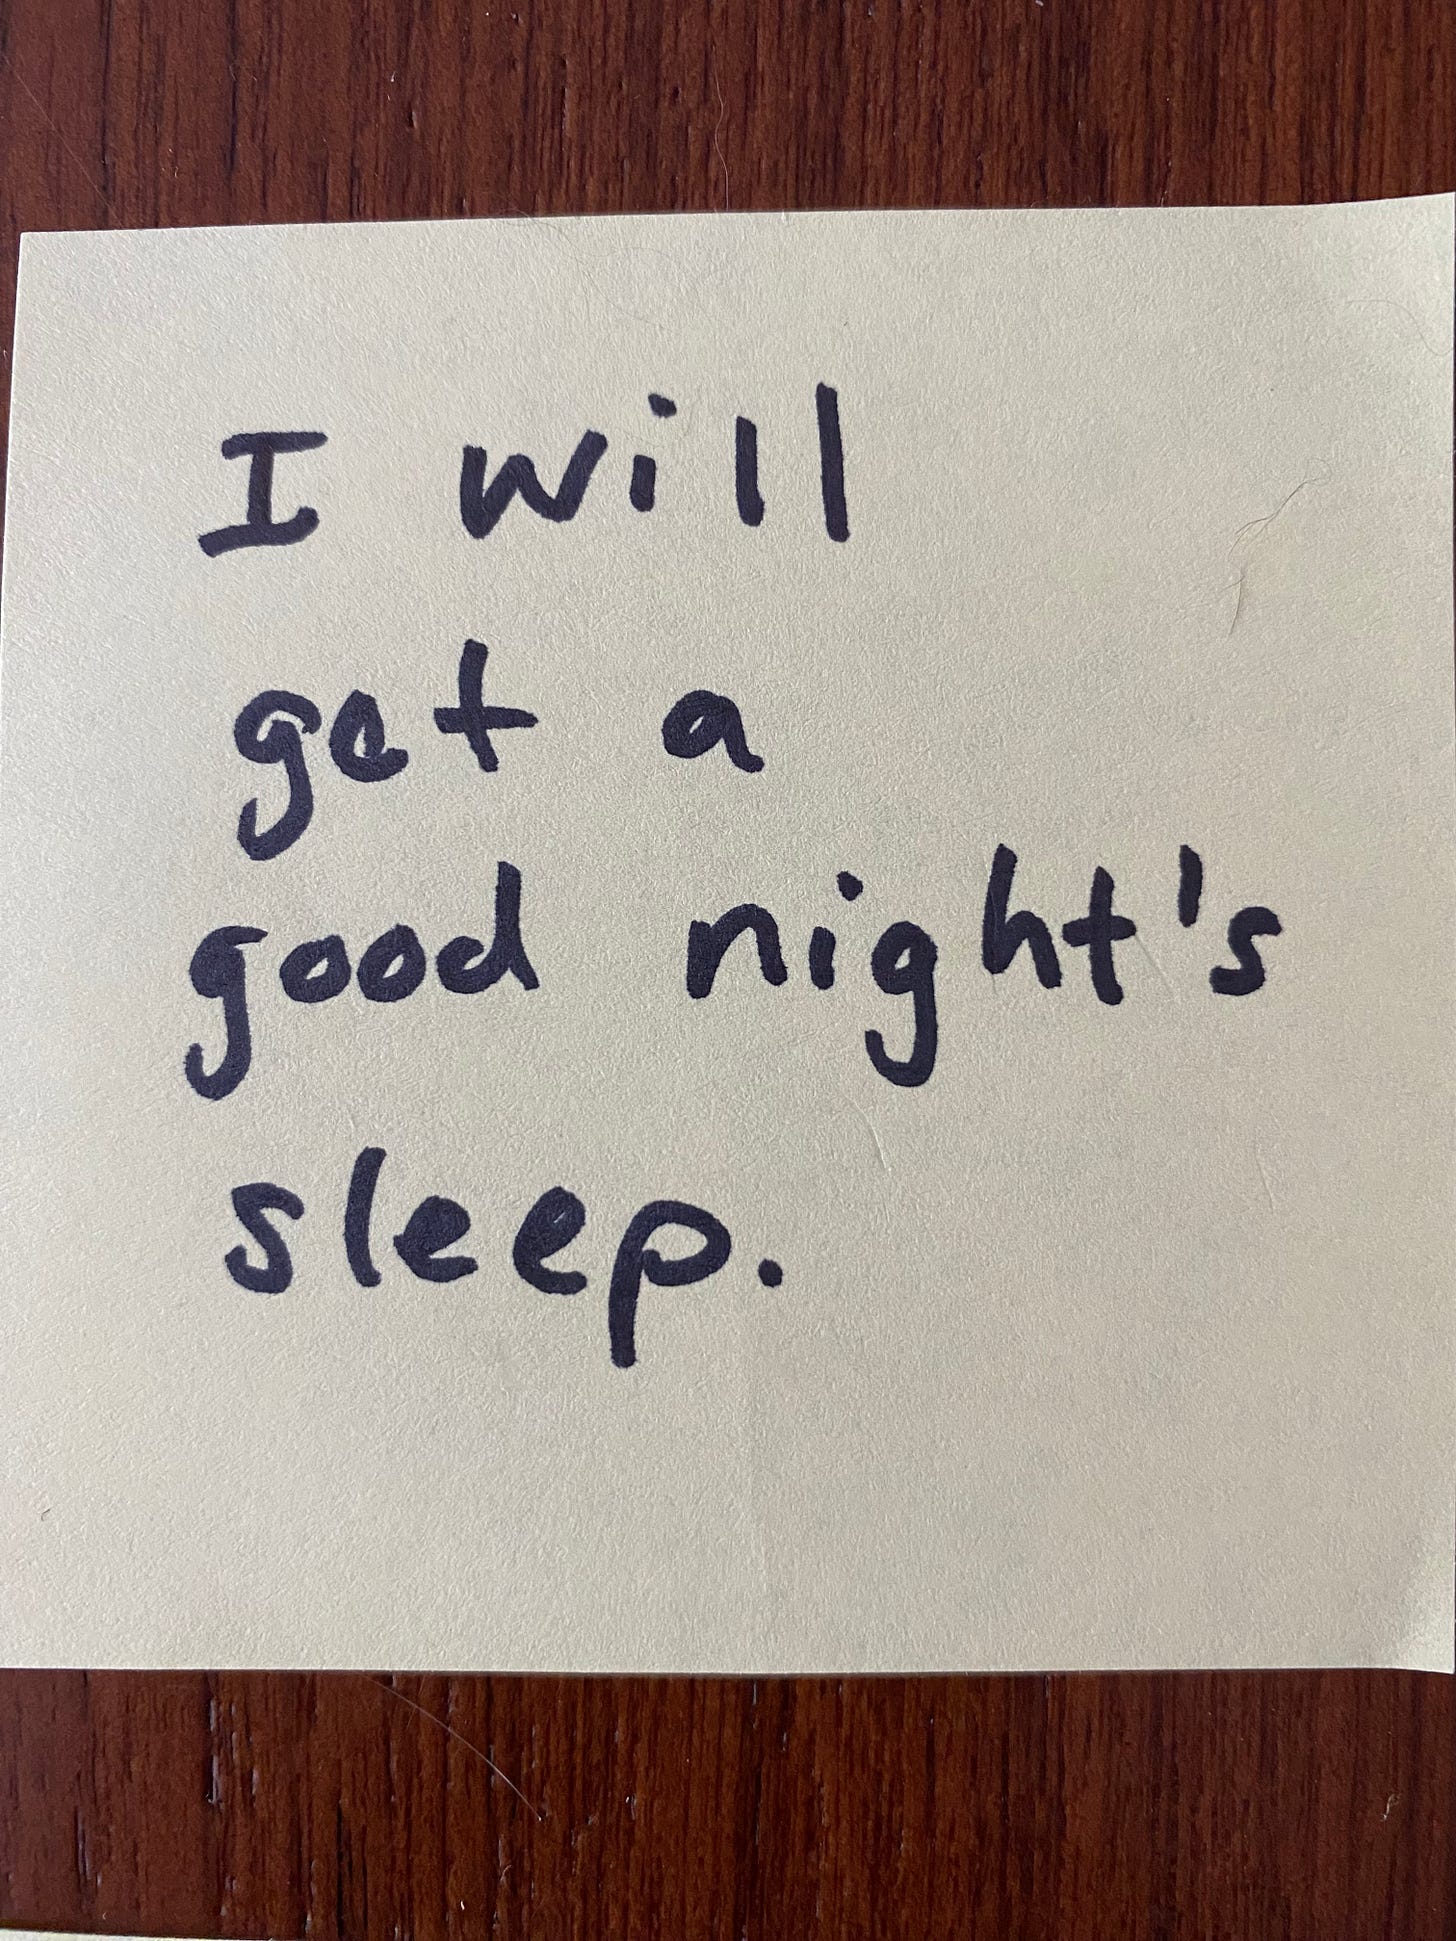 I will
get a
good night's
sleep.